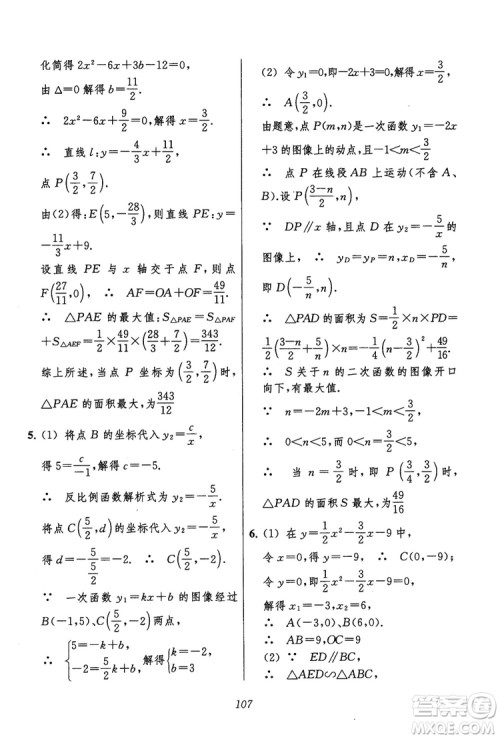 化简得 2x²-6x+3b-12=0,
由 △=0 解得 b=11/2.
∴ 2x²-6x+9/2=0, 解得 x=3/2.
∴ 直线 l:y=-4/3x+11/2,
点 P(3/2, 7/2).
由(2)得:E(5,-28/3), 直线 PE:y=
-11/3x+9.
设直线 PE 与 x 轴交于点 F, 则点
F(27/11,0). ∴ AF=OA+OF=49/11.
∴ △PAE 的最大值:S△PAE=S△PAF
+S△AEF=1/2×49/11×(28/3+7/2)=343/12.
综上所述,当点 P 坐标为(3/2,7/2)时,
△PAE 的面积最大,为343/12.
5. (1) 将点 B 的坐标代入 y₂=c/x,
得 5=c/-1, 解得 c=-5.
∴ 反比例函数解析式为 y₂=-5/x,
将点 C(5/2,d)的坐标代入 y₂=-5/x,
得 d=-5/(5/2)=-2. ∴ C(5/2,-2).
∵ 一次函数 y₁=kx+b 的图像经过
B(-1,5)、C(5/2,-2)两点,
∴ {5=-k+b, -2=5/2k+b, 解得{k=-2, b=3.
(2) 令 y₁=0,即-2x+3=0,解得 x=3/2,
∴ A(3/2,0).
由题意,点 P(m,n)是一次函数 y₁=-2x
+3 的图像上的动点,且-1<m<3/2,
∴ 点 P 在线段 AB 上运动(不含 A、
B). 设 P((3-n)/2,n).
∵ DP∥x 轴,且点 D 在 y₂=-5/x 的
图像上, ∴ y_D=y_P=n,x_D=-5/n,
即 D(-5/n,n).
∴ △PAD 的面积为 S=1/2×n×PD=
1/2((3-n)/2+5/n)×n=-1/4(n-3/2)²+49/16.
∴ S 关于 n 的二次函数的图像开口
向下,有最大值.
∵ n=-2m+3,-1<m<3/2,
∴ 0<n<5, ∵ 0<3/2<5,
∴ 当 n=3/2 时,即 P(3/4,3/2)时,
△PAD 的面积 S 最大,为49/16.
6. (1) 在 y=1/2x²-3/2x-9 中,
令 x=0,得 y=-9, ∴ C(0,-9).
令 y=0,得 1/2x²-3/2x-9=0,
解得 x₁=-3,x₂=6,
∴ A(-3,0)、B(6,0).
∴ AB=9,OC=9.
(2) ∵ ED∥BC,
∴ △AED∽△ABC,
107